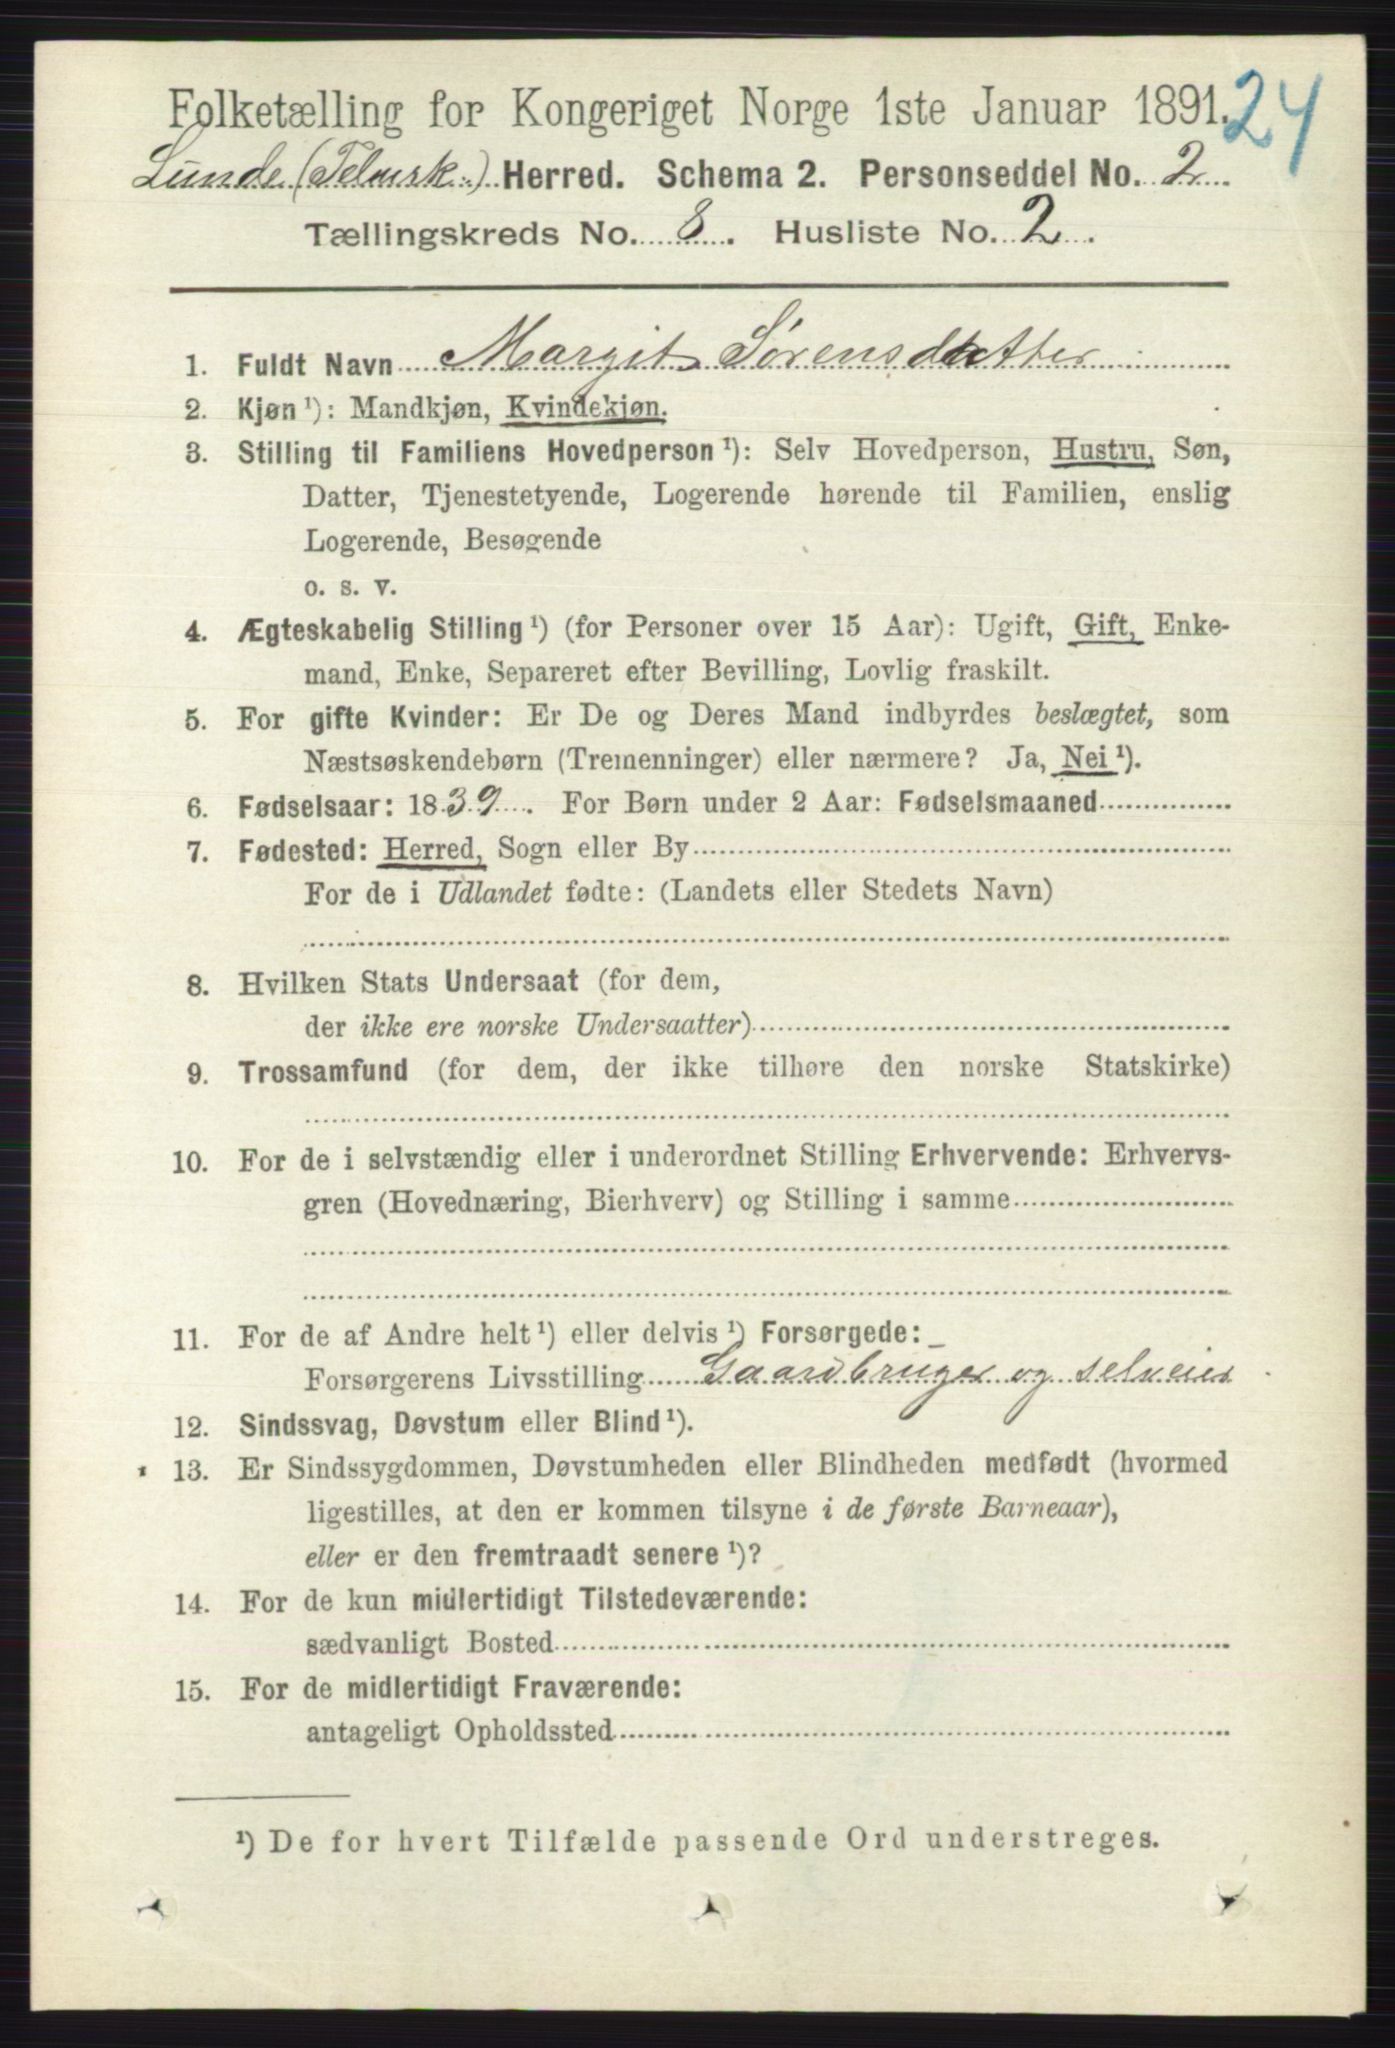 Folketælling for Kongeriget Norge 1ste Januar 1891. 24
Lunde (Telmrk.) Herred. Schema 2. Personseddel No. 2
Tællingskreds No. 8. Husliste No. 2.
1. Fuldt Navn Margit Sørensdatter
2. Kjøn ¹): Mandkjøn, Kvindekjøn.
3. Stilling til Familiens Hovedperson ¹): Selv Hovedperson, Hustru, Søn,
Datter, Tjenestetyende, Logerende hørende til Familien, enslig
Logerende, Besøgende
o. s. v.
4. Ægteskabelig Stilling ¹) (for Personer over 15 Aar): Ugift, Gift, Enke-
mand, Enke, Separeret efter Bevilling, Lovlig fraskilt.
5. For gifte Kvinder: Er De og Deres Mand indbyrdes beslægtet, som
Næstsøskendebørn (Tremenninger) eller nærmere? Ja, Nei ¹).
6. Fødselsaar: 1839. For Børn under 2 Aar: Fødselsmaaned
7. Fødested: Herred, Sogn eller By
For de i Udlandet fødte: (Landets eller Stedets Navn)
8. Hvilken Stats Undersaat (for dem,
der ikke ere norske Undersaatter)
9. Trossamfund (for dem, der ikke tilhøre den norske Statskirke)
10. For de i selvstændig eller i underordnet Stilling Erhvervende: Erhvervs-
gren (Hovednæring, Bierhverv) og Stilling i samme
11. For de af Andre helt ¹) eller delvis ¹) Forsørgede:
Forsørgerens Livsstilling Gaardbruger og selveier
12. Sindssvag, Døvstum eller Blind ¹).
13. Er Sindssygdommen, Døvstumheden eller Blindheden medfødt (hvormed
ligestilles, at den er kommen tilsyne i de første Barneaar),
eller er den fremtraadt senere ¹)?
14. For de kun midlertidigt Tilstedeværende:
sædvanligt Bosted
15. For de midlertidigt Fraværende:
antageligt Opholdssted
¹) De for hvert Tilfælde passende Ord understreges.